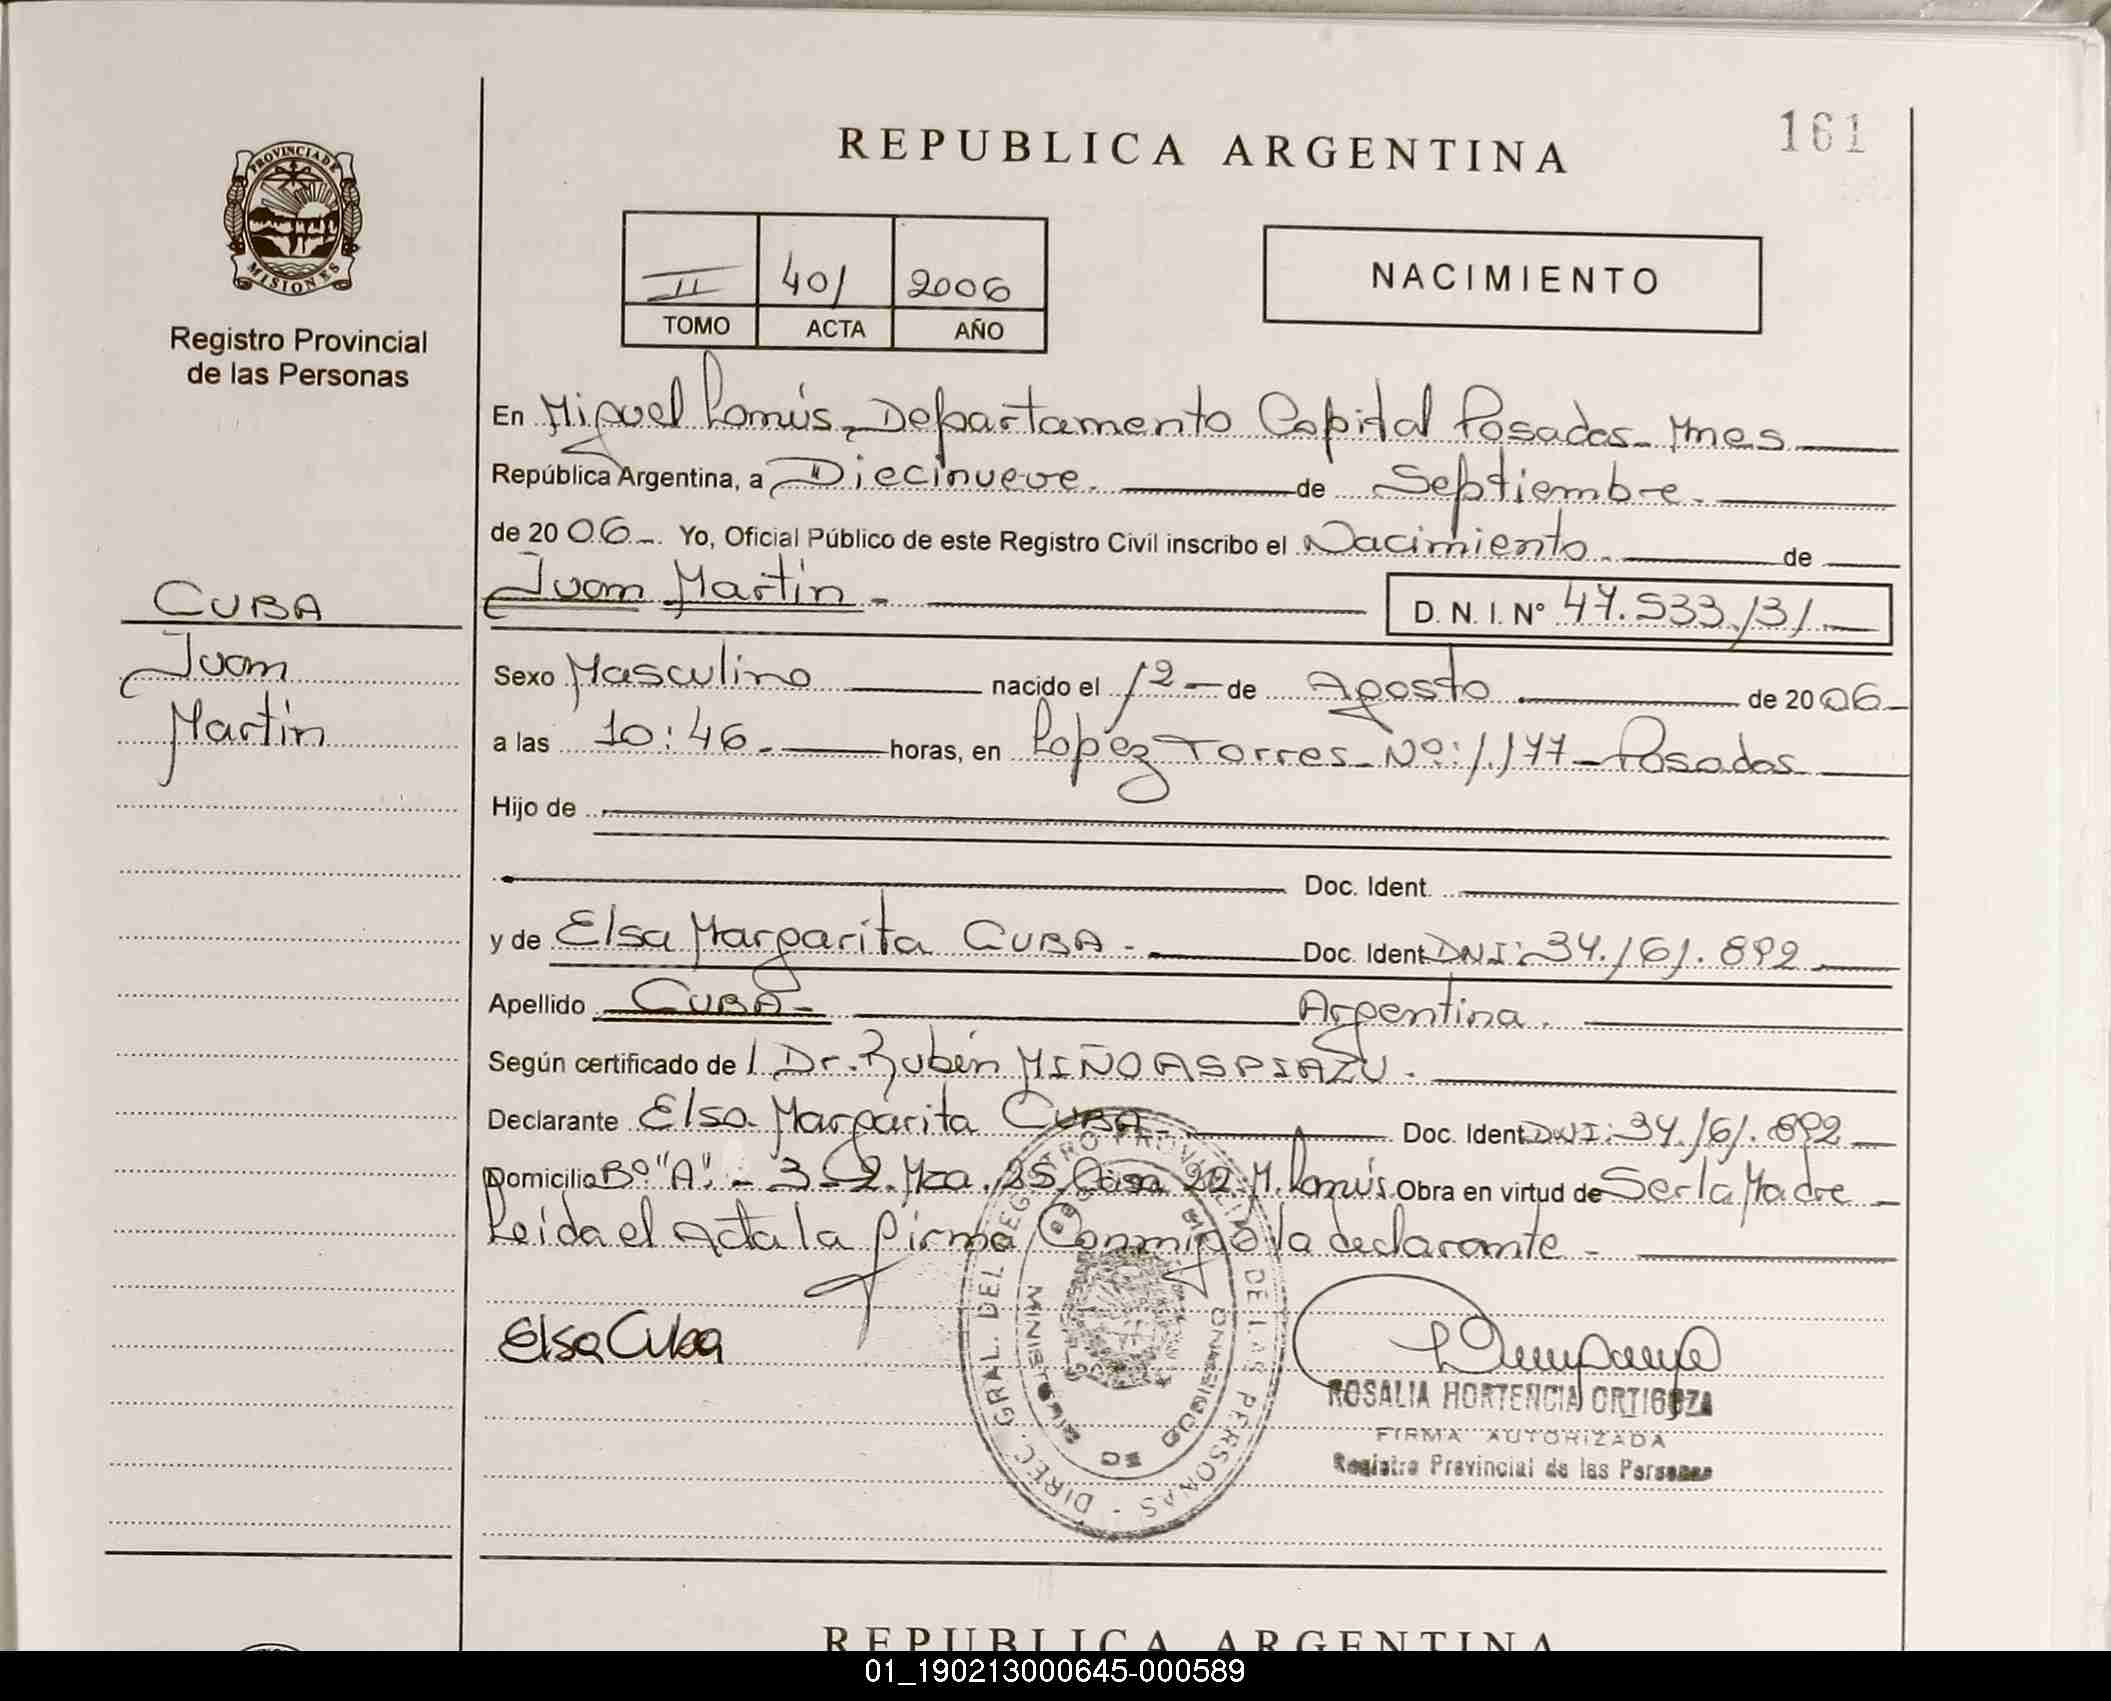 161
REPUBLICA ARGENTINA
PROVINCIA DE
MISIONES
Registro Provincial
de las Personas
II 401 2006
TOMO ACTA AÑO
NACIMIENTO
En Miguel Lanús, Departamento Capital Posadas - Mnes
República Argentina, a Diecinueve. de Septiembre.
de 2006 -. Yo, Oficial Público de este Registro Civil inscribo el Nacimiento. de
CUBA
Juan
Martin
Juan Martin - D. N. I. Nº 47.533.131.
Sexo Masculino nacido el 12 - de Agosto. de 2006
a las 10:46. horas, en Lopez Torres - Nº: 1.177 - Posadas
Hijo de
Doc. Ident.
y de Elsa Margarita CUBA - Doc. Ident. DNI: 34.161.892
Apellido CUBA - Argentina.
Según certificado de l Dr. Rubén MIÑO ASPIAZU.
Declarante Elsa Margarita CUBA - Doc. Ident. DNI: 34.161.892
Domicilio Bº "A". - 3-2. Mza. 25 Casa 22 M. Lanús. Obra en virtud de Ser la Madre
Leida el Acta la firma Conmigo la declarante -
Elsa Cuba
DIREC. GRAL. DEL REGISTRO PROVINCIAL DE LAS PERSONAS -
ROSALIA HORTENCIA ORTIGOZA
FIRMA AUTORIZADA
Registro Provincial de las Personas
REPUBLICA ARGENTINA
01_190213000645-000589